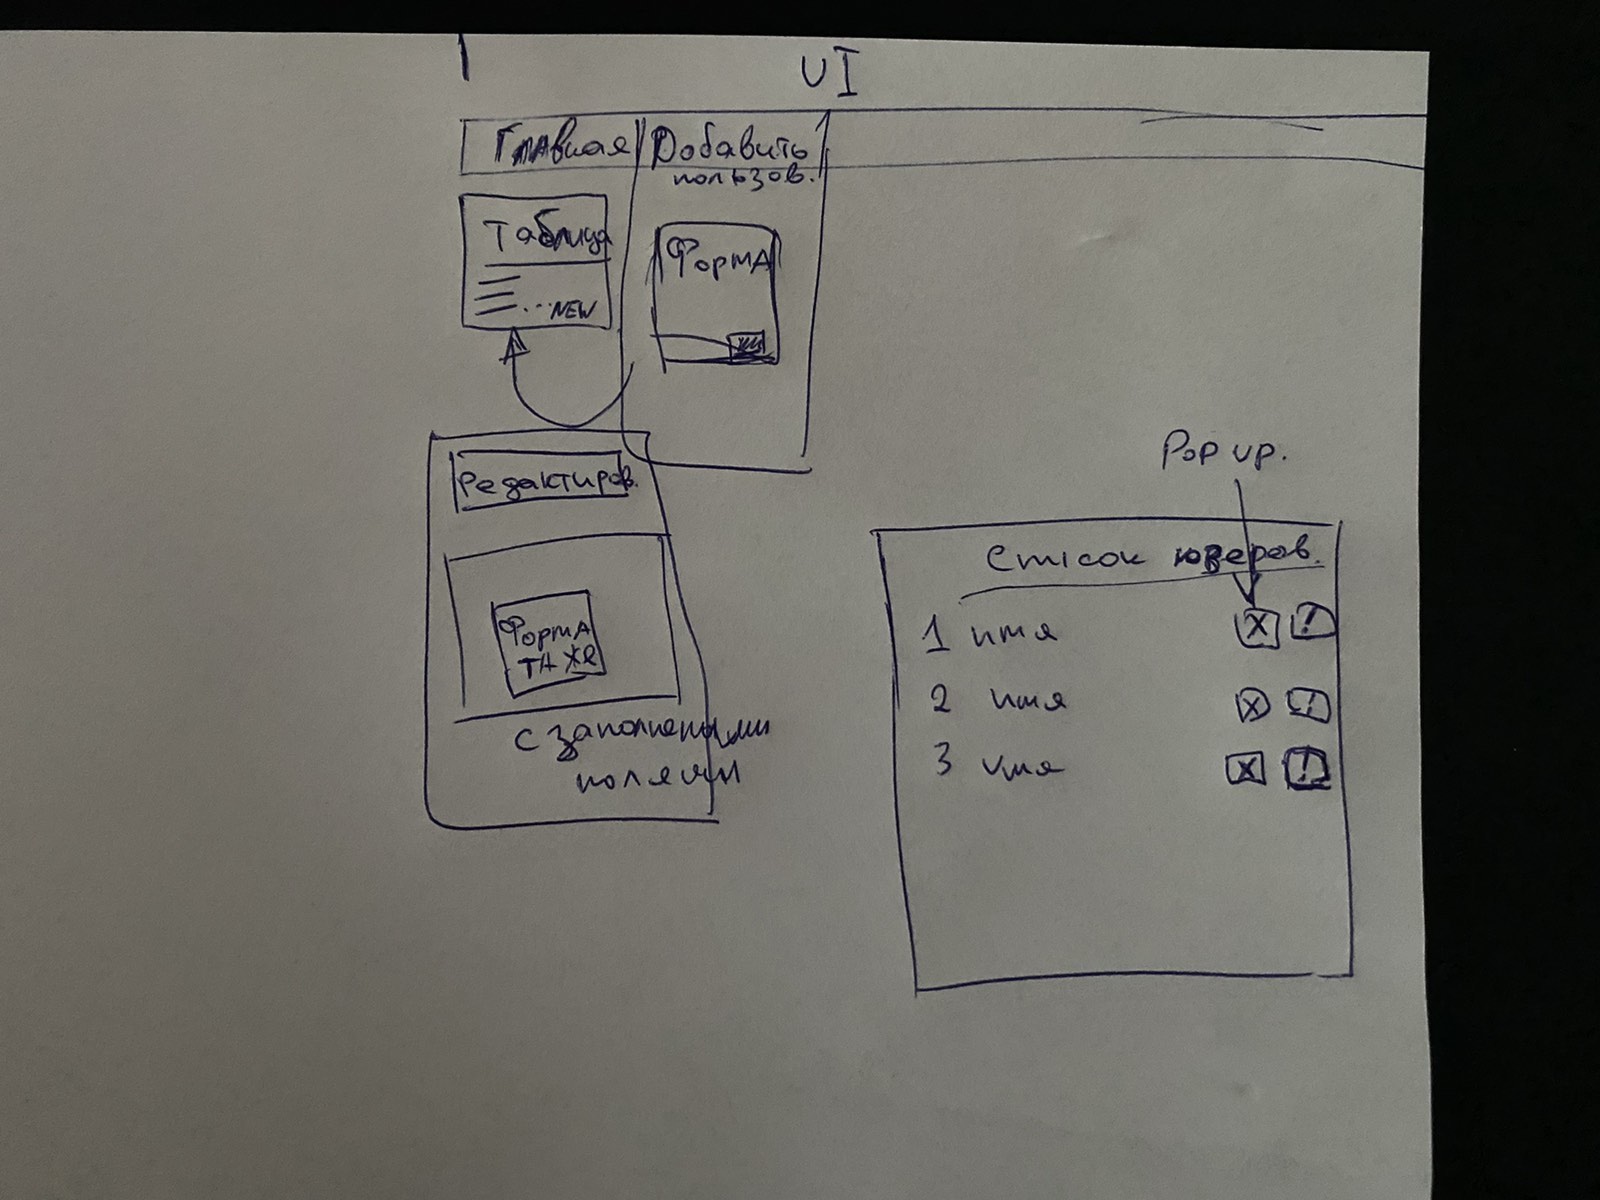 UI
Главная
Добавить
пользов.
Таблица
...NEW
Форма
Редактиров.
Форма
та же
с заполнеными
полями
Pop up.
Список юзеров.
1 имя X !
2 имя X !
3 имя X !